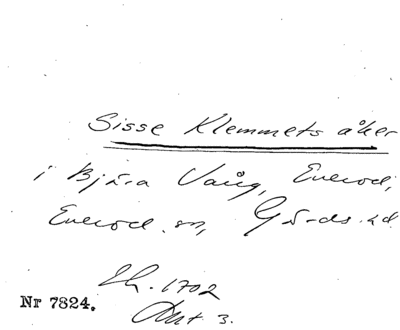 Sisse Klemmets åker
i Bjära Vång, Everöd,
Everöd sn, Gärds hd.
Lh. 1702
Akt 3.
Nr 7824.